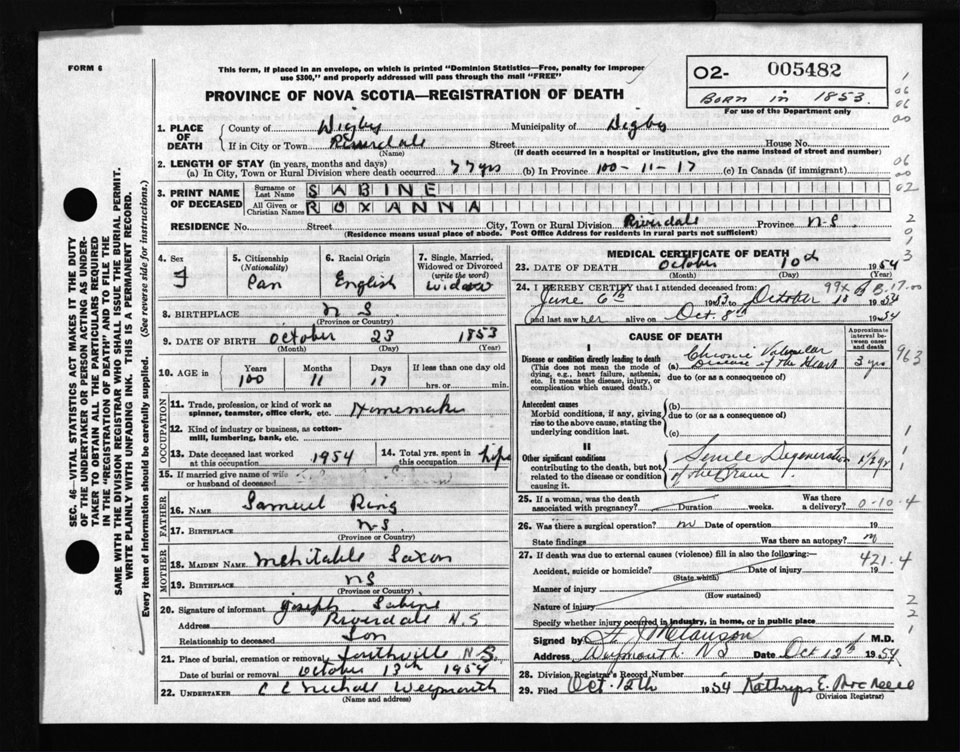 FORM 6
This form, if placed in an envelope, on which is printed "Dominion Statistics—Free, penalty for improper
use $300," and properly addressed will pass through the mail "FREE"
O2- 005482
BORN in 1853.
For use of the Department only
PROVINCE OF NOVA SCOTIA—REGISTRATION OF DEATH
1. PLACE OF DEATH
County of Digby Municipality of Digby
If in City or Town Riverdale Street House No.
(Name) (If death occurred in a hospital or institution, give the name instead of street and number)
2. LENGTH OF STAY (in years, months and days)
(a) In City, Town or Rural Division where death occurred 77 yrs (b) In Province 100-11-17 (c) In Canada (if immigrant)
3. PRINT NAME OF DECEASED
Surname or Last Name SABINE
All Given or Christian Names ROXANNA
RESIDENCE No. Street City, Town or Rural Division Riverdale Province N.S.
(Residence means usual place of abode. Post Office Address for residents in rural parts not sufficient)
4. Sex F
5. Citizenship (Nationality) Can
6. Racial Origin English
7. Single, Married, Widowed or Divorced (write the word) Widow
8. BIRTHPLACE N S
(Province or Country)
9. DATE OF BIRTH October 23 1853
(Month) (Day) (Year)
10. AGE in Years Months Days If less than one day old
100 11 17 hrs. or min.
OCCUPATION
11. Trade, profession, or kind of work as spinner, teamster, office clerk, etc. Homemaker
12. Kind of industry or business, as cotton-mill, lumbering, bank, etc.
13. Date deceased last worked at this occupation 1954
14. Total yrs. spent in this occupation
15. If married give name of wife or husband of deceased
FATHER
16. Name Samuel Ring
17. Birthplace N S
(Province or Country)
MOTHER
18. MAIDEN NAME Mehitable Saxon
19. BIRTHPLACE N S
(Province or Country)
20. Signature of informant Joseph Sabine
Address Riverdale N.S
Relationship to deceased Son
21. Place of burial, cremation or removal N.S.
Date of burial or removal October 13th 1954
22. UNDERTAKER C L Nichols Weymouth
(Name and address)
MEDICAL CERTIFICATE OF DEATH
23. DATE OF DEATH October 10th 1954
(Month) (Day)
24. I HEREBY CERTIFY that I attended deceased from:
June 6th 1953 to October 10 1954
and last saw her alive on Oct. 8th 1954
CAUSE OF DEATH
Approximate interval between onset and death
I
Disease or condition directly leading to death
(This does not mean the mode of dying, e.g., heart failure, asthenia, etc. It means the disease, injury, or complication which caused death.)
(a) Chronic Valvular Disease of the Heart 3 yrs
due to (or as a consequence of)
Antecedent causes
Morbid conditions, if any, giving rise to the above cause, stating the underlying condition last.
(b)
due to (or as a consequence of)
(c)
II
Other significant conditions
contributing to the death, but not related to the disease or condition causing it.
Senile Degeneration of the Brain
25. If a woman, was the death associated with pregnancy? Duration weeks. Was there a delivery? 0-10-4
26. Was there a surgical operation? no Date of operation 19
State findings Was there an autopsy? no
27. If death was due to external causes (violence) fill in also the following:— 421.4
Accident, suicide or homicide? Date of injury 19
(State which)
Manner of injury
(How sustained)
Nature of injury
Specify whether injury occurred in industry, in home, or in public place
Signed by Melanson M.D.
Address Weymouth N S Date Oct 12th 1954
28. Division Registrar's Record Number
29. Filed Oct. 12th 1954 Kathryn E.
(Division Registrar)
963
SEC. 46 - VITAL STATISTICS ACT MAKES IT THE DUTY
OF THE UNDERTAKER OR PERSON ACTING AS UNDER-
TAKER TO OBTAIN ALL THE PARTICULARS REQUIRED
IN THE "REGISTRATION OF DEATH" AND TO FILE THE
SAME WITH THE DIVISION REGISTRAR WHO SHALL ISSUE THE BURIAL PERMIT.
WRITE PLAINLY WITH UNFADING INK. THIS IS A PERMANENT RECORD.
Every item of information should be carefully supplied. (See reverse side for instructions.)